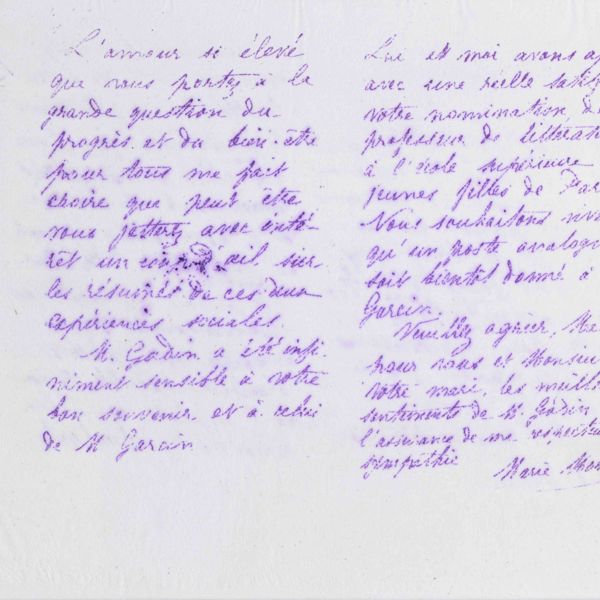 L'amour si élevé
que vous portez à la
grande question du
progrès et du bien-être
pour tous me fait
croire que peut être
vous jetterez avec inté-
rêt un coup d'œil sur
les résumés de ces deux
expériences sociales.
M. Godin a été infi-
niment sensible à votre
bon souvenir et à celui
de M Garcin
Lui et moi avons ap
avec une réelle satis
votre nomination de
professeur de littérat
à l'école supérieure
jeunes filles de Par
Nous souhaitons
qu'un poste analogu
soit bientôt donné à
Garcin.
Veuillez agréer, Ma
pour vous et Monsieu
votre mari, les meill
sentiments de M. Godin
l'assurance de ma respectu
sympathie
Marie Mor